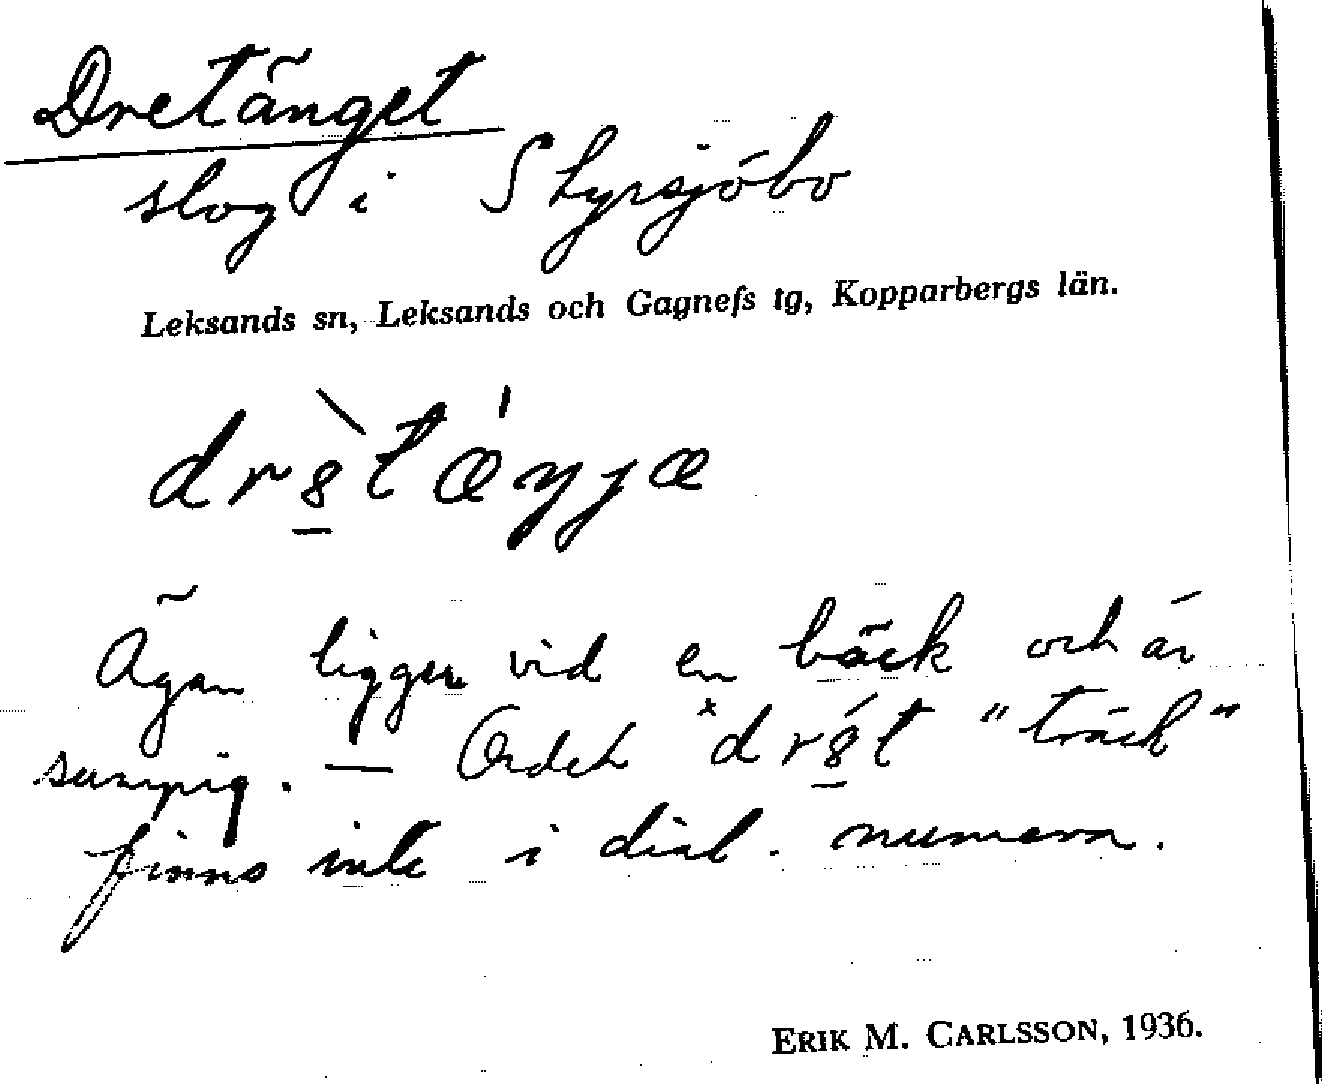 Dretänget
slog i Styrsjöbo
Leksands sn, Leksands och Gagnefs tg, Kopparbergs län.
Ägan ligger vid en bäck och är
sumpig. — Ordet "träck"
finns inte i dial. numera.
ERIK M. CARLSSON, 1936.